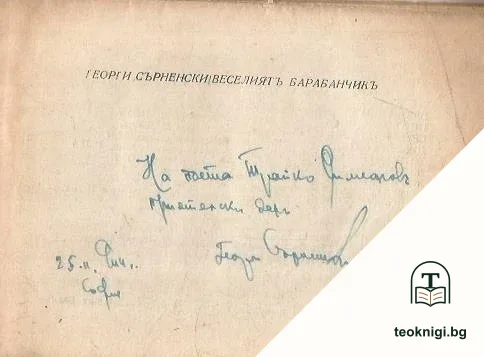 ГЕОРГИ СЪРНЕНСКИ/ВЕСЕЛИЯТЪ БАРАБАНЧИКЪ
На поета Трайко Симеоновъ
приятелски даръ
25.II.
София
Георги Сърненски
T
teoknigi.bg